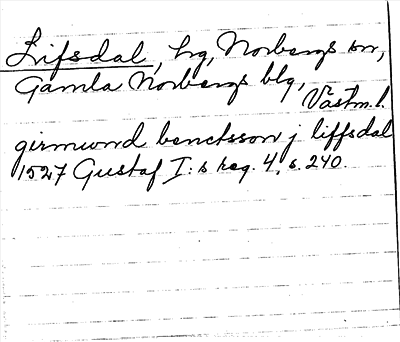 Lifsdal, hg, Norbergs sn,
Gamla Norbergs blg,
Västm.l.
girmund benctsson j liffsdal
1527 Gustaf I:s reg. 4, s. 240.